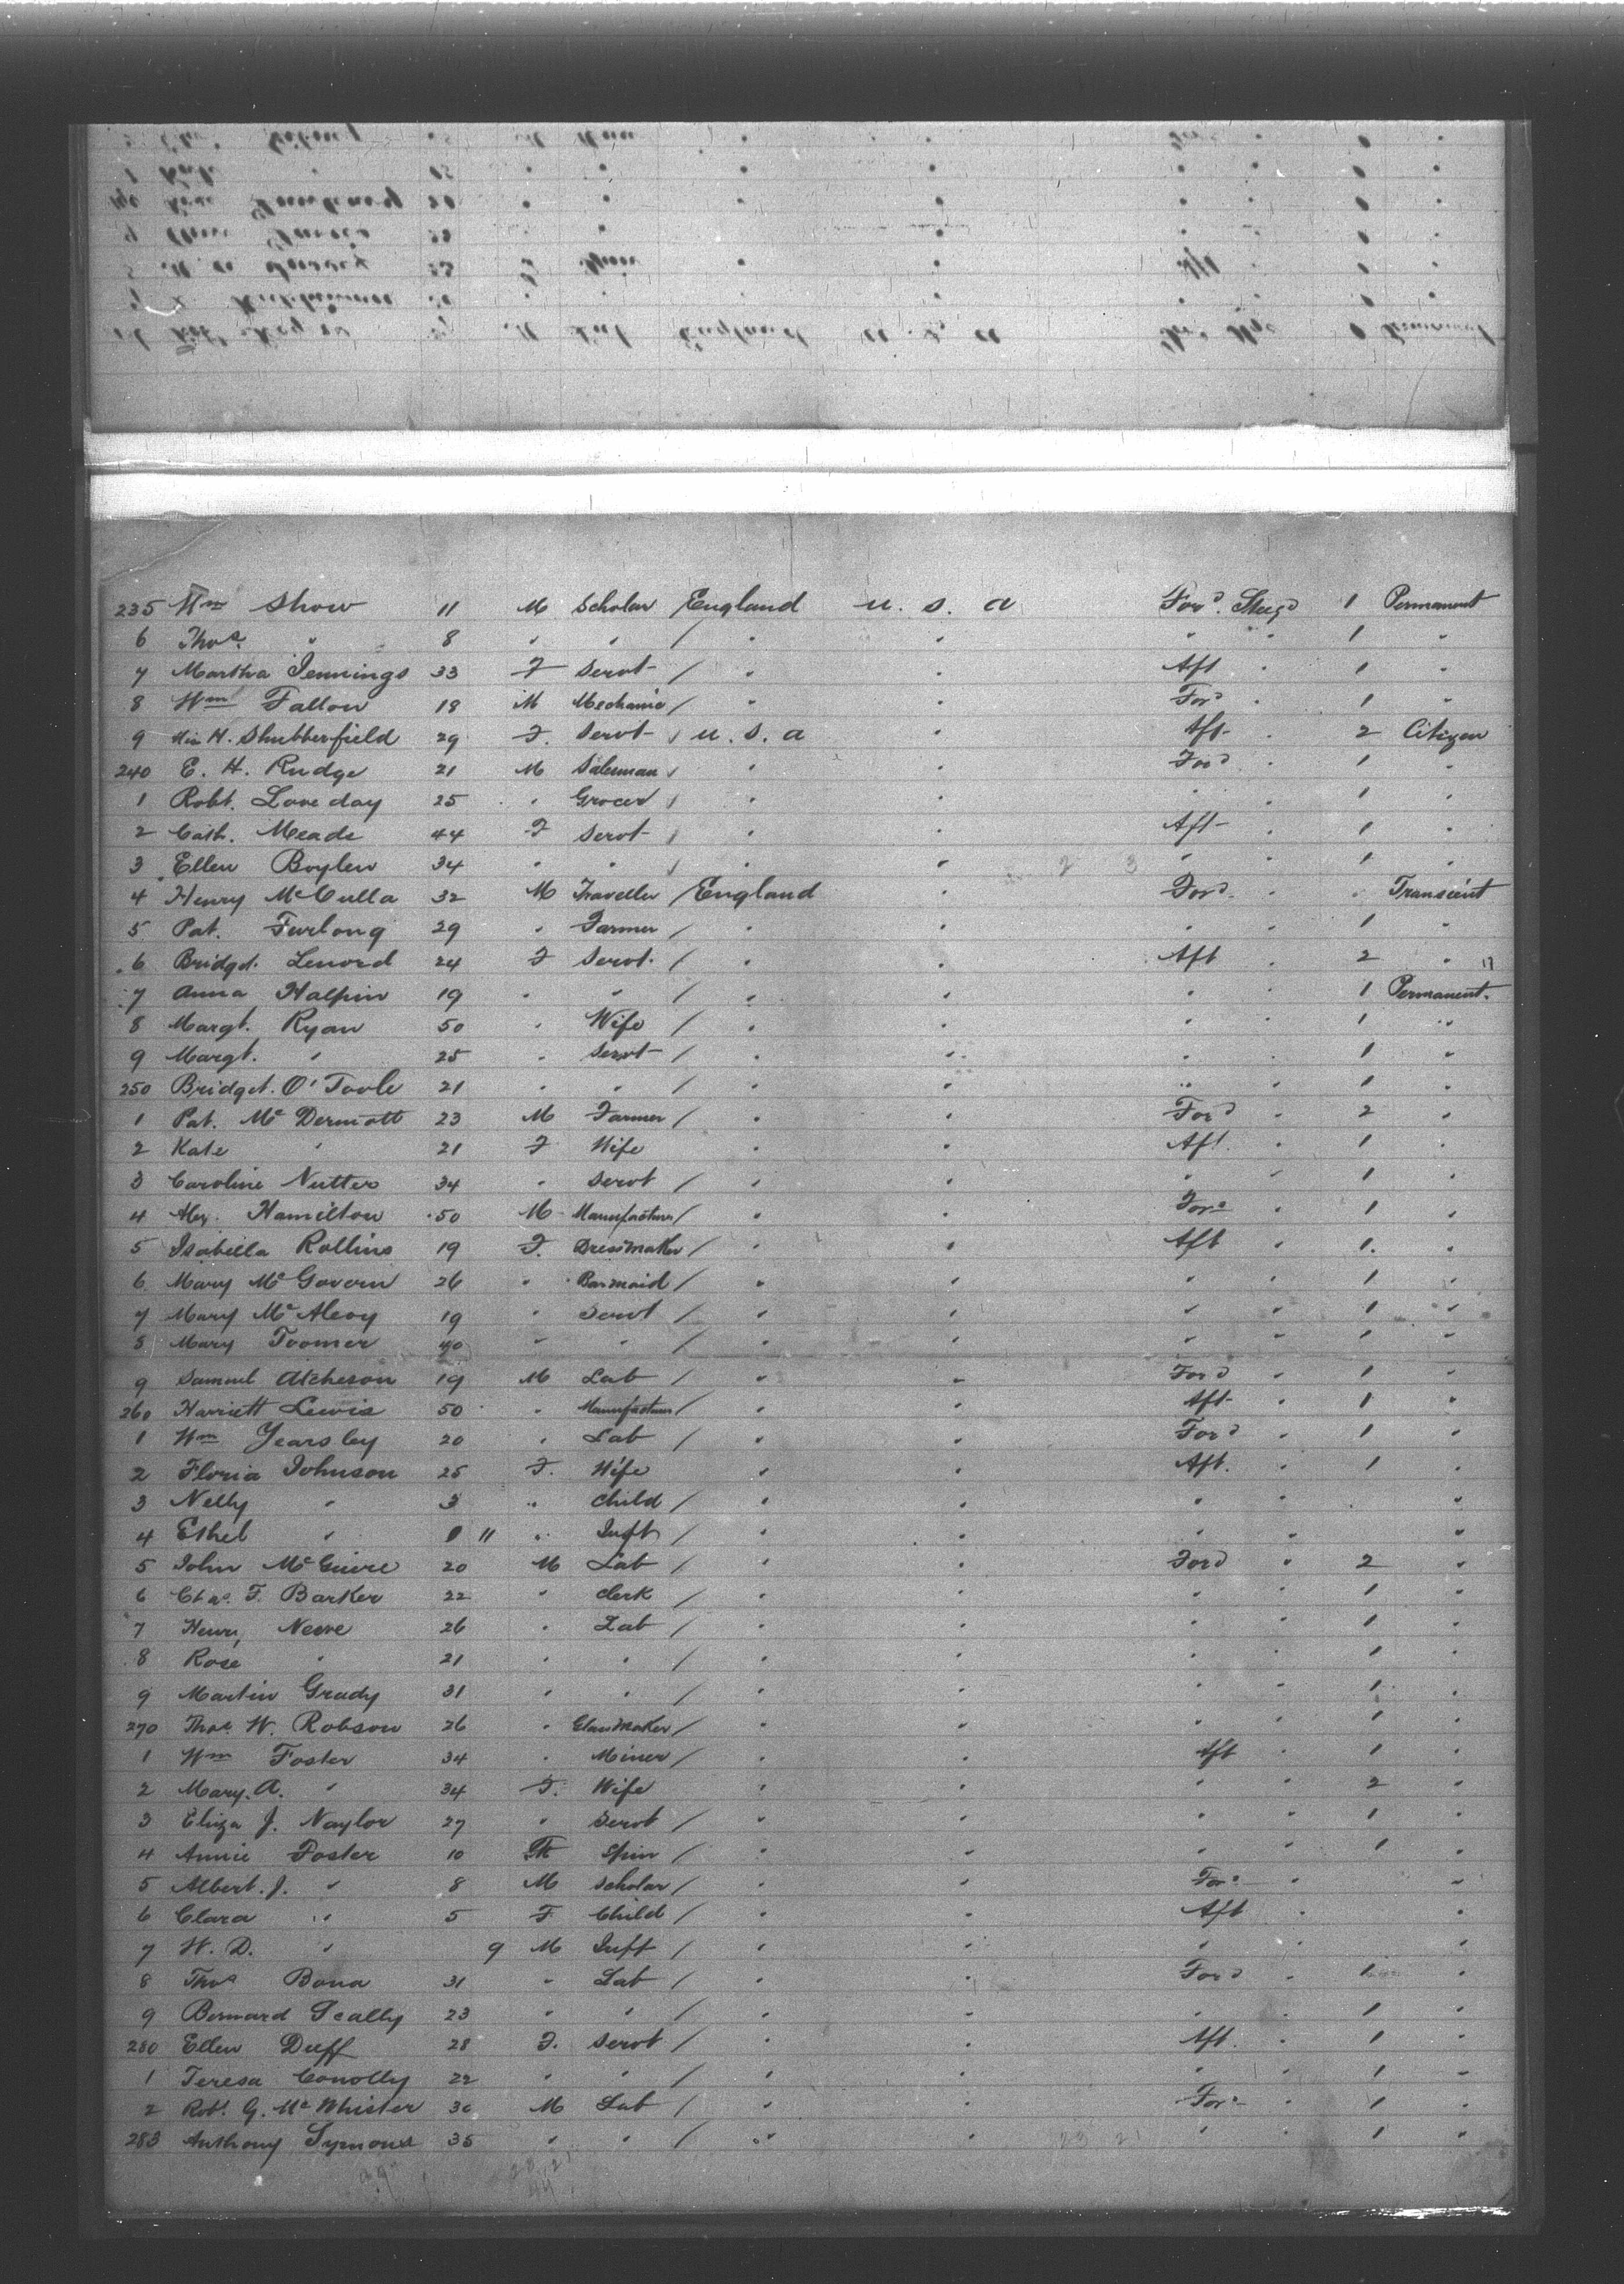 235 Wm Show 11 M Scholar / England U. S. A Ford. Steegd 1 Permanent
6 Thos. " 8 " " / " " " " 1 "
7 Martha Jennings 33 F Servt / " " Aft " 1 "
8 Wm Fallow 18 M Mechanic / " " Ford " 1 "
9 H. Shubberfield 29 F. Servt / U. S. A " Aft " 2 Citizen
240 E. H. Rudge 21 M Salesman / " " Ford " 1 "
1 Robt. Loveday 25 " Grocer / " " " " 1 "
2 Cath. Meade 44 F Servt / " " Aft " 1 "
3 Ellen Boylen 34 " " / " " 2 3 " " 1 "
4 Henry McCulla 32 M Traveller / England " Ford " " Transient
5 Pat. Furlong 29 " Farmer / " " " " 1 "
6 Bridget. Lenord 24 F Servt. / " " Aft " 2 "
7 Anna Halpin 19 " " / " " " " 1 Permanent.
8 Margt. Ryan 50 " Wife / " " " " 1 "
9 Margt. " 25 " Servt / " " " " 1 "
250 Bridget. O'Toole 21 " " / " " " " 1 "
1 Pat. McDermott 23 M Farmer / " " Ford " 2 "
2 Kate " 21 F Wife " " Aft. " 1 "
3 Caroline Nutter 34 " Servt / " " " " 1 "
4 Alex. Hamilton 50 M Manufacturer / " " Ford " 1 "
5 Isabella Rollins 19 F. Dressmaker / " " Aft " 1. "
6 Mary McGovern 26 " Barmaid / " " " " 1 "
7 Mary McAlevy 19 " Servt / " " " " 1 "
8 Mary Toomer 40 " " / " " " " 1 "
9 Samuel Atcheson 19 M Lab / " " Ford " 1 "
260 Harriett Lewis 50 " Manufacturer / " " Aft " 1 "
1 Wm Yearsley 20 " Lab / " " Ford " 1 "
2 Floria Johnson 25 F. Wife " " Aft. " 1 "
3 Nelly " 3 " Child / " " " " "
4 Ethel " 11 " Inft / " " " " "
5 John McGuire 20 M Lab / " " Ford " 2 "
6 Chas. F. Barker 22 " Clerk / " " " " 1 "
7 Henry Neeve 26 " Lab / " " " " 1 "
8 Rose " 21 " " / " " " " 1 "
9 Martin Grady 31 " " / " " " " 1 "
270 Thos. W. Robson 26 " Glassmaker / " " " " 1 "
1 Wm Foster 34 " Miner / " " Aft " 1 "
2 Mary. A. " 34 F. Wife " " " " 2 "
3 Eliza J. Naylor 27 " Servt / " " " " 1 "
4 Annie Foster 10 F Spin / " " " " 1 "
5 Albert. J. " 8 M Scholar / " " Ford " "
6 Clara " 5 F Child / " " Aft " "
7 W. D. " 9 M Inft / " " " " "
8 Thos Bona 31 " Lab / " " Ford " 1 "
9 Bernard Scally 23 " " / " " " " 1 "
280 Ellen Duff 28 F. Servt / " " Aft. " 1 "
1 Teresa Conolly 22 " " / " " " " 1 "
2 Robt. G. McWhister 30 M Lab / " " Ford " 1 "
283 Anthony Symons 35 " " / " " 23 21 " " 1 "